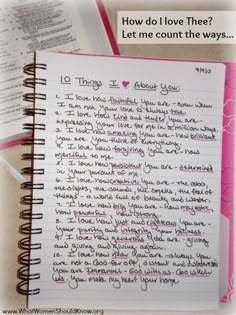 How do I love Thee?
Let me count the ways...
9/9/10
10 Things I ♥ About You:
1. I love how faithful You are - even when
I am not, Your love is always true.
2. I love how kind and tender You are -
expressing Your love for me in a million ways.
3. I love how amazing You are - how brilliant
You are! You think of everything.
4. I love how forgiving You are - how
merciful to me.
5. I love how persistent You are - determined
in Your pursuit of me.
6. I love how creative You are - the colors,
the sights, the sounds, the smells, the feel of
things - a world full of beauty and wonder.
7. I love how big You are - how majestic,
how powerful, how strong.
8. I love how just and righteous You are -
Your purity and integrity, Your holiness.
9. I love how generous You are - giving
and giving and giving again.
10. I love how near You are - always. You
are not a God far off, distant and disinterested
You are Immanuel - God with us, God within
us. You make my heart Your home.
www.WhatWomenShouldKnow.org